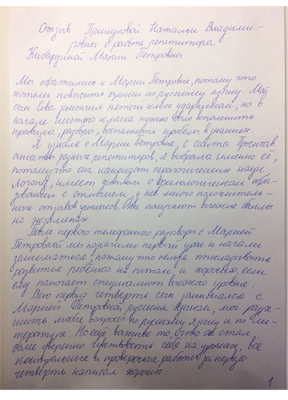 Отзыв Прилуковой Натальи Владими-
ровны о работе репетитора
Марии Петровны.
Мы обратились к Марии Петровне, потому что
хотели повысить оценки по русскому языку. Мой
сын Сева закончил пятый класс ударником, но в
начале шестого класса нужно было вспомнить
правила, восполнить пробелы в знаниях.
Я узнала о Марии Петровне с сайта. Прочитав
анкеты разных репетиторов, я выбрала именно её,
потому что она кандидат педагогических наук,
логопед, имеет диплом о филологическом обра-
зовании с отличием, у неё много положитель-
ных отзывов учеников. Они получают высокие баллы
на экзаменах.
После первого телефонного разговора с Марией
Петровной мы назначили первый урок и начали
заниматься, потому что нельзя откладывать
развитие ребёнка на потом, и хорошо, если
ему помогает специалист высокого уровня.
Всю первую четверть сын занимался с
Марией Петровной русским языком, мог разре-
шить любые вопросы по русскому языку и по ли-
тературе. Но ещё важнее то, что он стал
более уверенно чувствовать себя на уроках, все
контрольные и проверочные работы за первую
четверть написал хорошо.
1